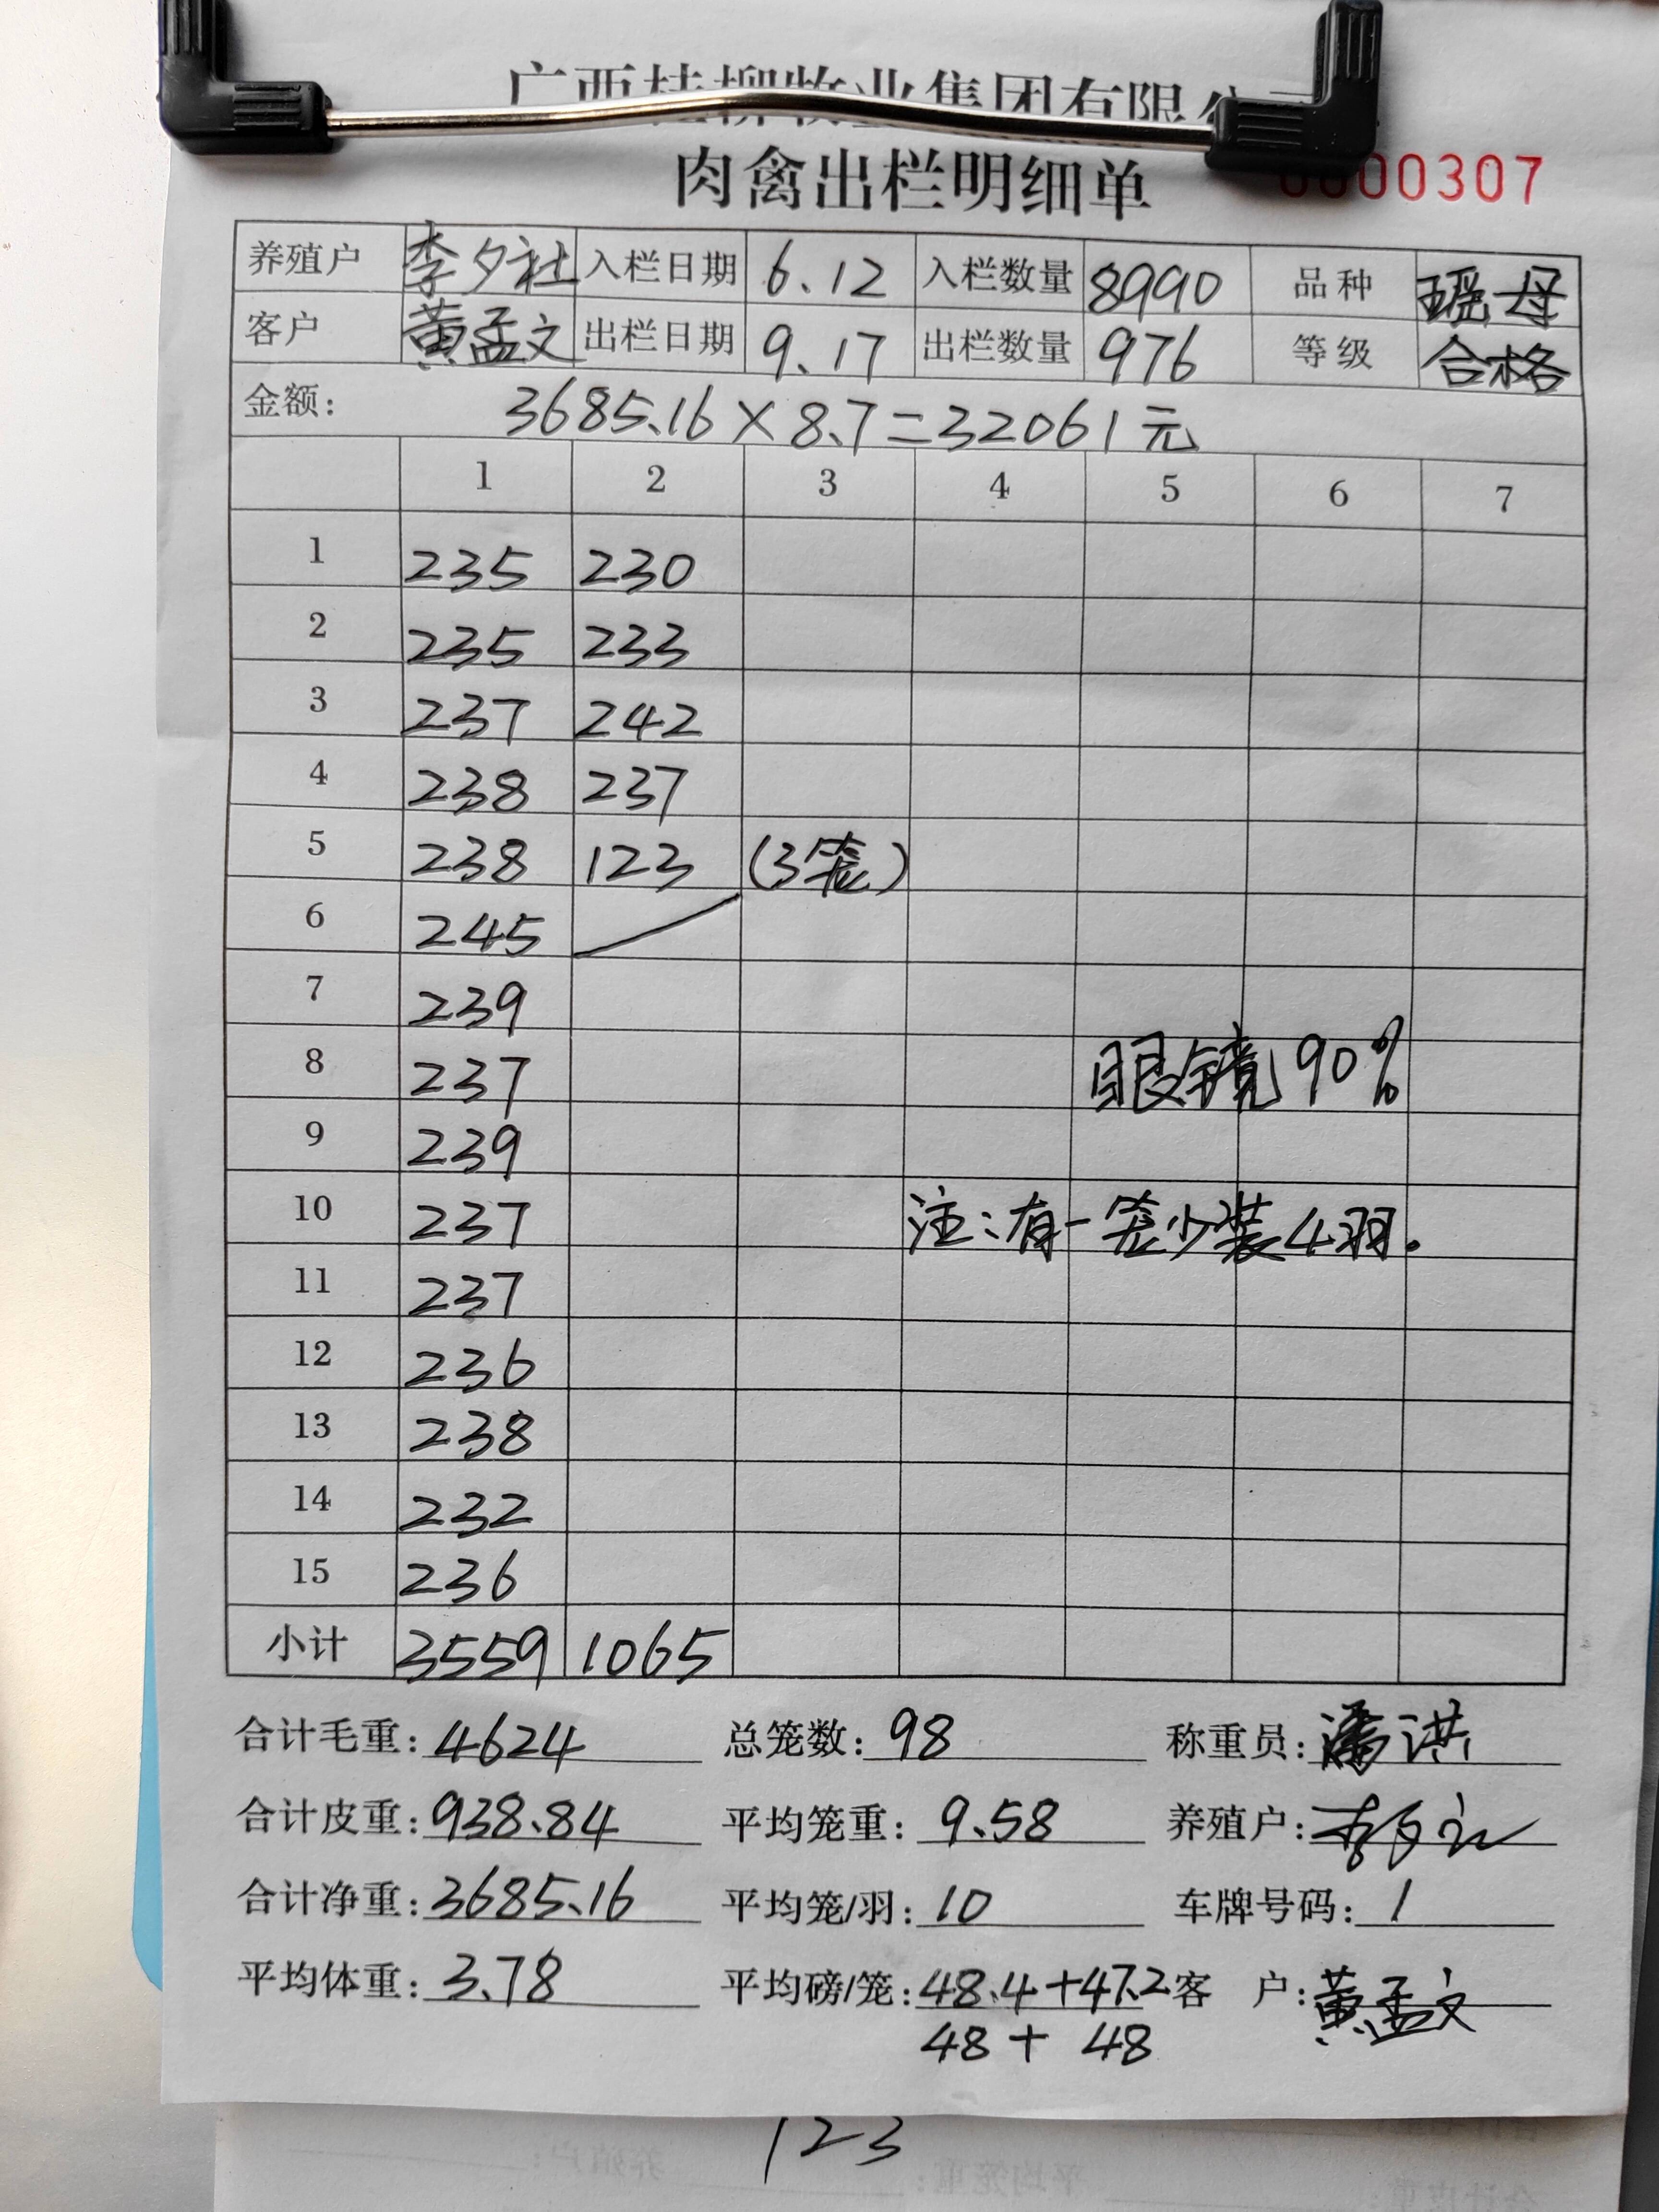 广西桂柳牧业集团有限公司
肉禽出栏明细单
0000307
养殖户 李夕社 入栏日期 6.12 入栏数量 8990 品种 瑶母
客户 黄孟文 出栏日期 9.17 出栏数量 976 等级 合格
金额: 3685.16×8.7=32061元
1 2 3 4 5 6 7
1 235 230
2 235 233
3 237 242
4 238 237
5 238 123 (3笼)
6 245
7 239
8 237 眼镜90%
9 239
10 237 注:有一笼少装4羽.
11 237
12 236
13 238
14 232
15 236
小计 3559 1065
合计毛重: 4624 总笼数: 98 称重员: 潘洪
合计皮重: 938.84 平均笼重: 9.58 养殖户:
合计净重: 3685.16 平均笼/羽: 10 车牌号码: 1
平均体重: 3.78 平均磅/笼: 48.4+47.2 客 户: 黄孟文
48+ 48
123